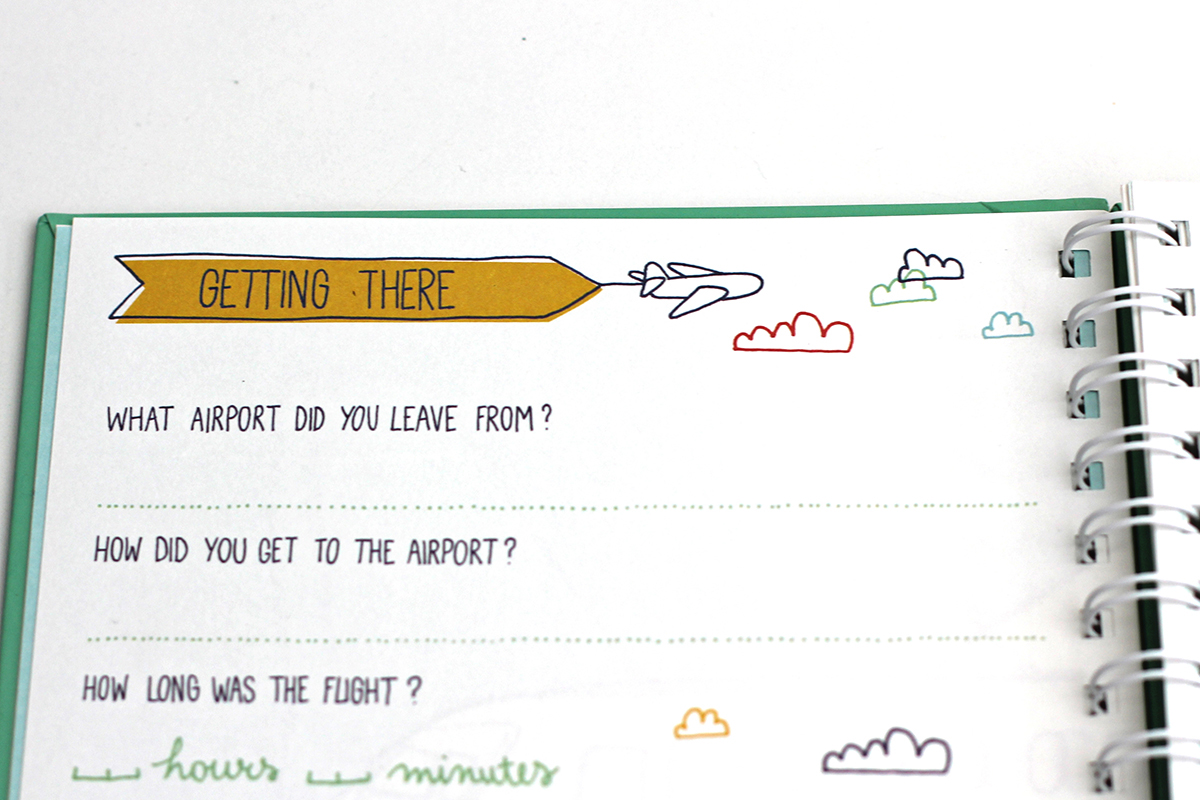 GETTING THERE
WHAT AIRPORT DID YOU LEAVE FROM?
HOW DID YOU GET TO THE AIRPORT?
HOW LONG WAS THE FLIGHT?
hours minutes